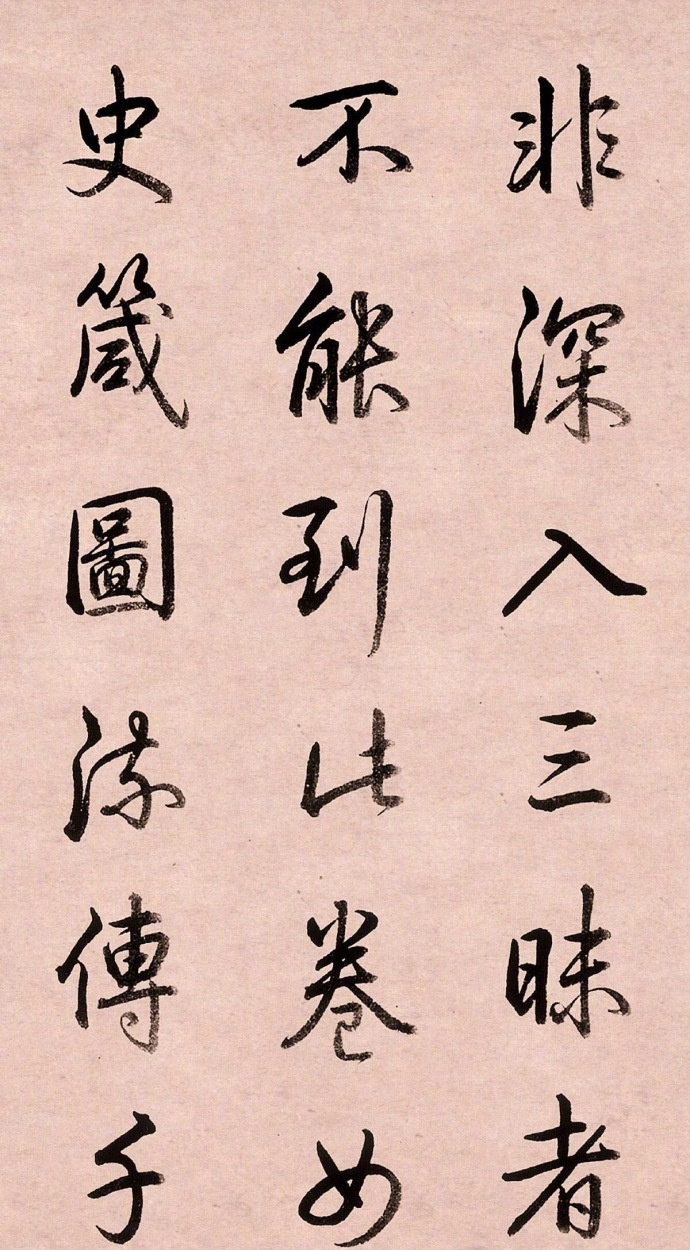 非深入三昧者
不能到此卷女
史箴圖流傳千